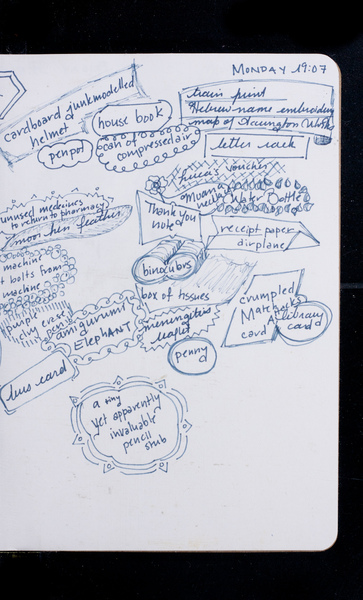 MONDAY 19:07
cardboard & junkmodelled
helmet
house book
penpot
can of
compressed air
train print
Hebrew name embroidery
map of
letter rack
voucher
Water Bottle
unused medicines
to return to pharmacy
moor hen feather
Thank you
note
receipt paper
airplane
machine
bolts from
machine
binoculars
box of tissues
purple
pencil
amigurumi
ELEPHANT
meningitis
leaflet
crumpled
card
library
card
penny
bus card
a tiny
yet apparently
invaluable
pencil
stub